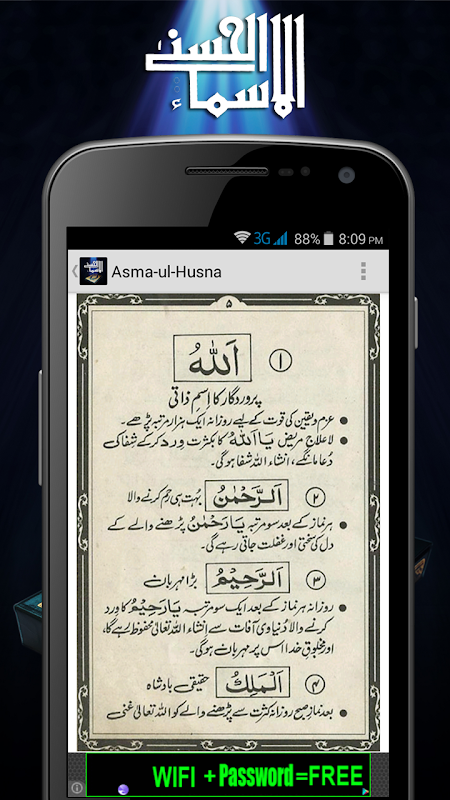 الاسماء الحسنى
3G 88% 8:09 PM
Asma-ul-Husna
۵
۱ اَللّٰهُ
پروردگار کا اسمِ ذاتی
عزم ویقین کی قوت کے لیے روزانہ ایک ہزار مرتبہ پڑھے۔
لاعلاج مریض یَااَللّٰهُ کا بکثرت وِرد کرکے شفا کی
دُعا مانگے، انشاء اللہ شفا ہوگی۔
۲ اَلرَّحْمٰنُ بہُت ہی رحم کرنے والا
ہر نماز کے بعد سو مرتبہ یَارَحْمٰنُ پڑھنے والے کے
دل کی سختی اور غفلت جاتی رہے گی۔
۳ اَلرَّحِیْمُ بڑا مہربان
روزانہ ہر نماز کے بعد ایک سو مرتبہ یَارَحِیْمُ کا وِرد
کرنے والا دُنیاوی آفات سے انشاء اللہ تعالیٰ محفوظ رہے گا،
اور مخلوقِ خدا اس پر مہربان ہوگی۔
۴ اَلْمَلِكُ حقیقی بادشاہ
بعد نمازِ صبح روزانہ کثرت سے پڑھنے والے کو اللہ تعالیٰ غنی
WIFI + Password = FREE